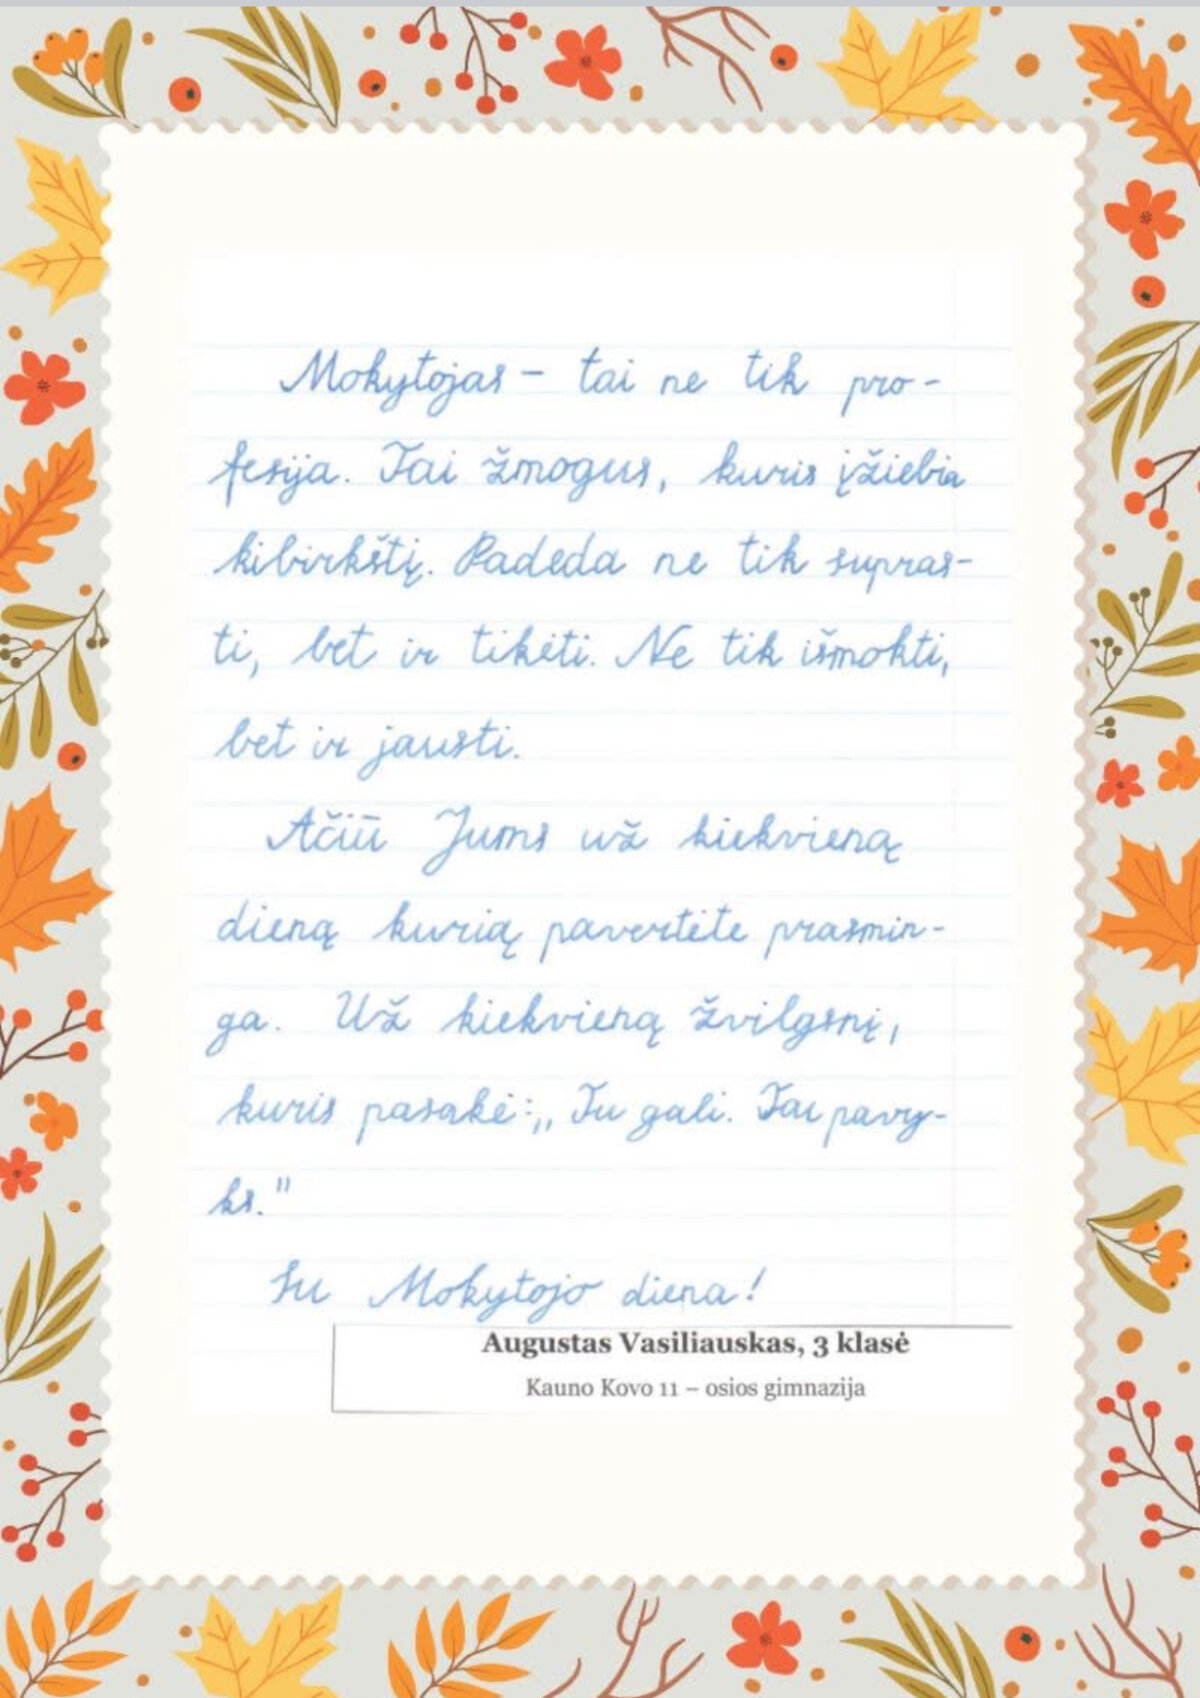 Mokytojas – tai ne tik pro-
fesija. Tai žmogus, kuris įžiebia
kibirkštį. Padeda ne tik supras-
ti, bet ir tikėti. Ne tik išmokti,
bet ir jausti.
Ačiū Jums už kiekvieną
dieną kurią pavertėte prasmin-
ga. Už kiekvieną žvilgsnį,
kuris pasakė: „Tu gali. Tau pavy-
ks."
Su Mokytojo diena!
Augustas Vasiliauskas, 3 klasė
Kauno Kovo 11 – osios gimnazija